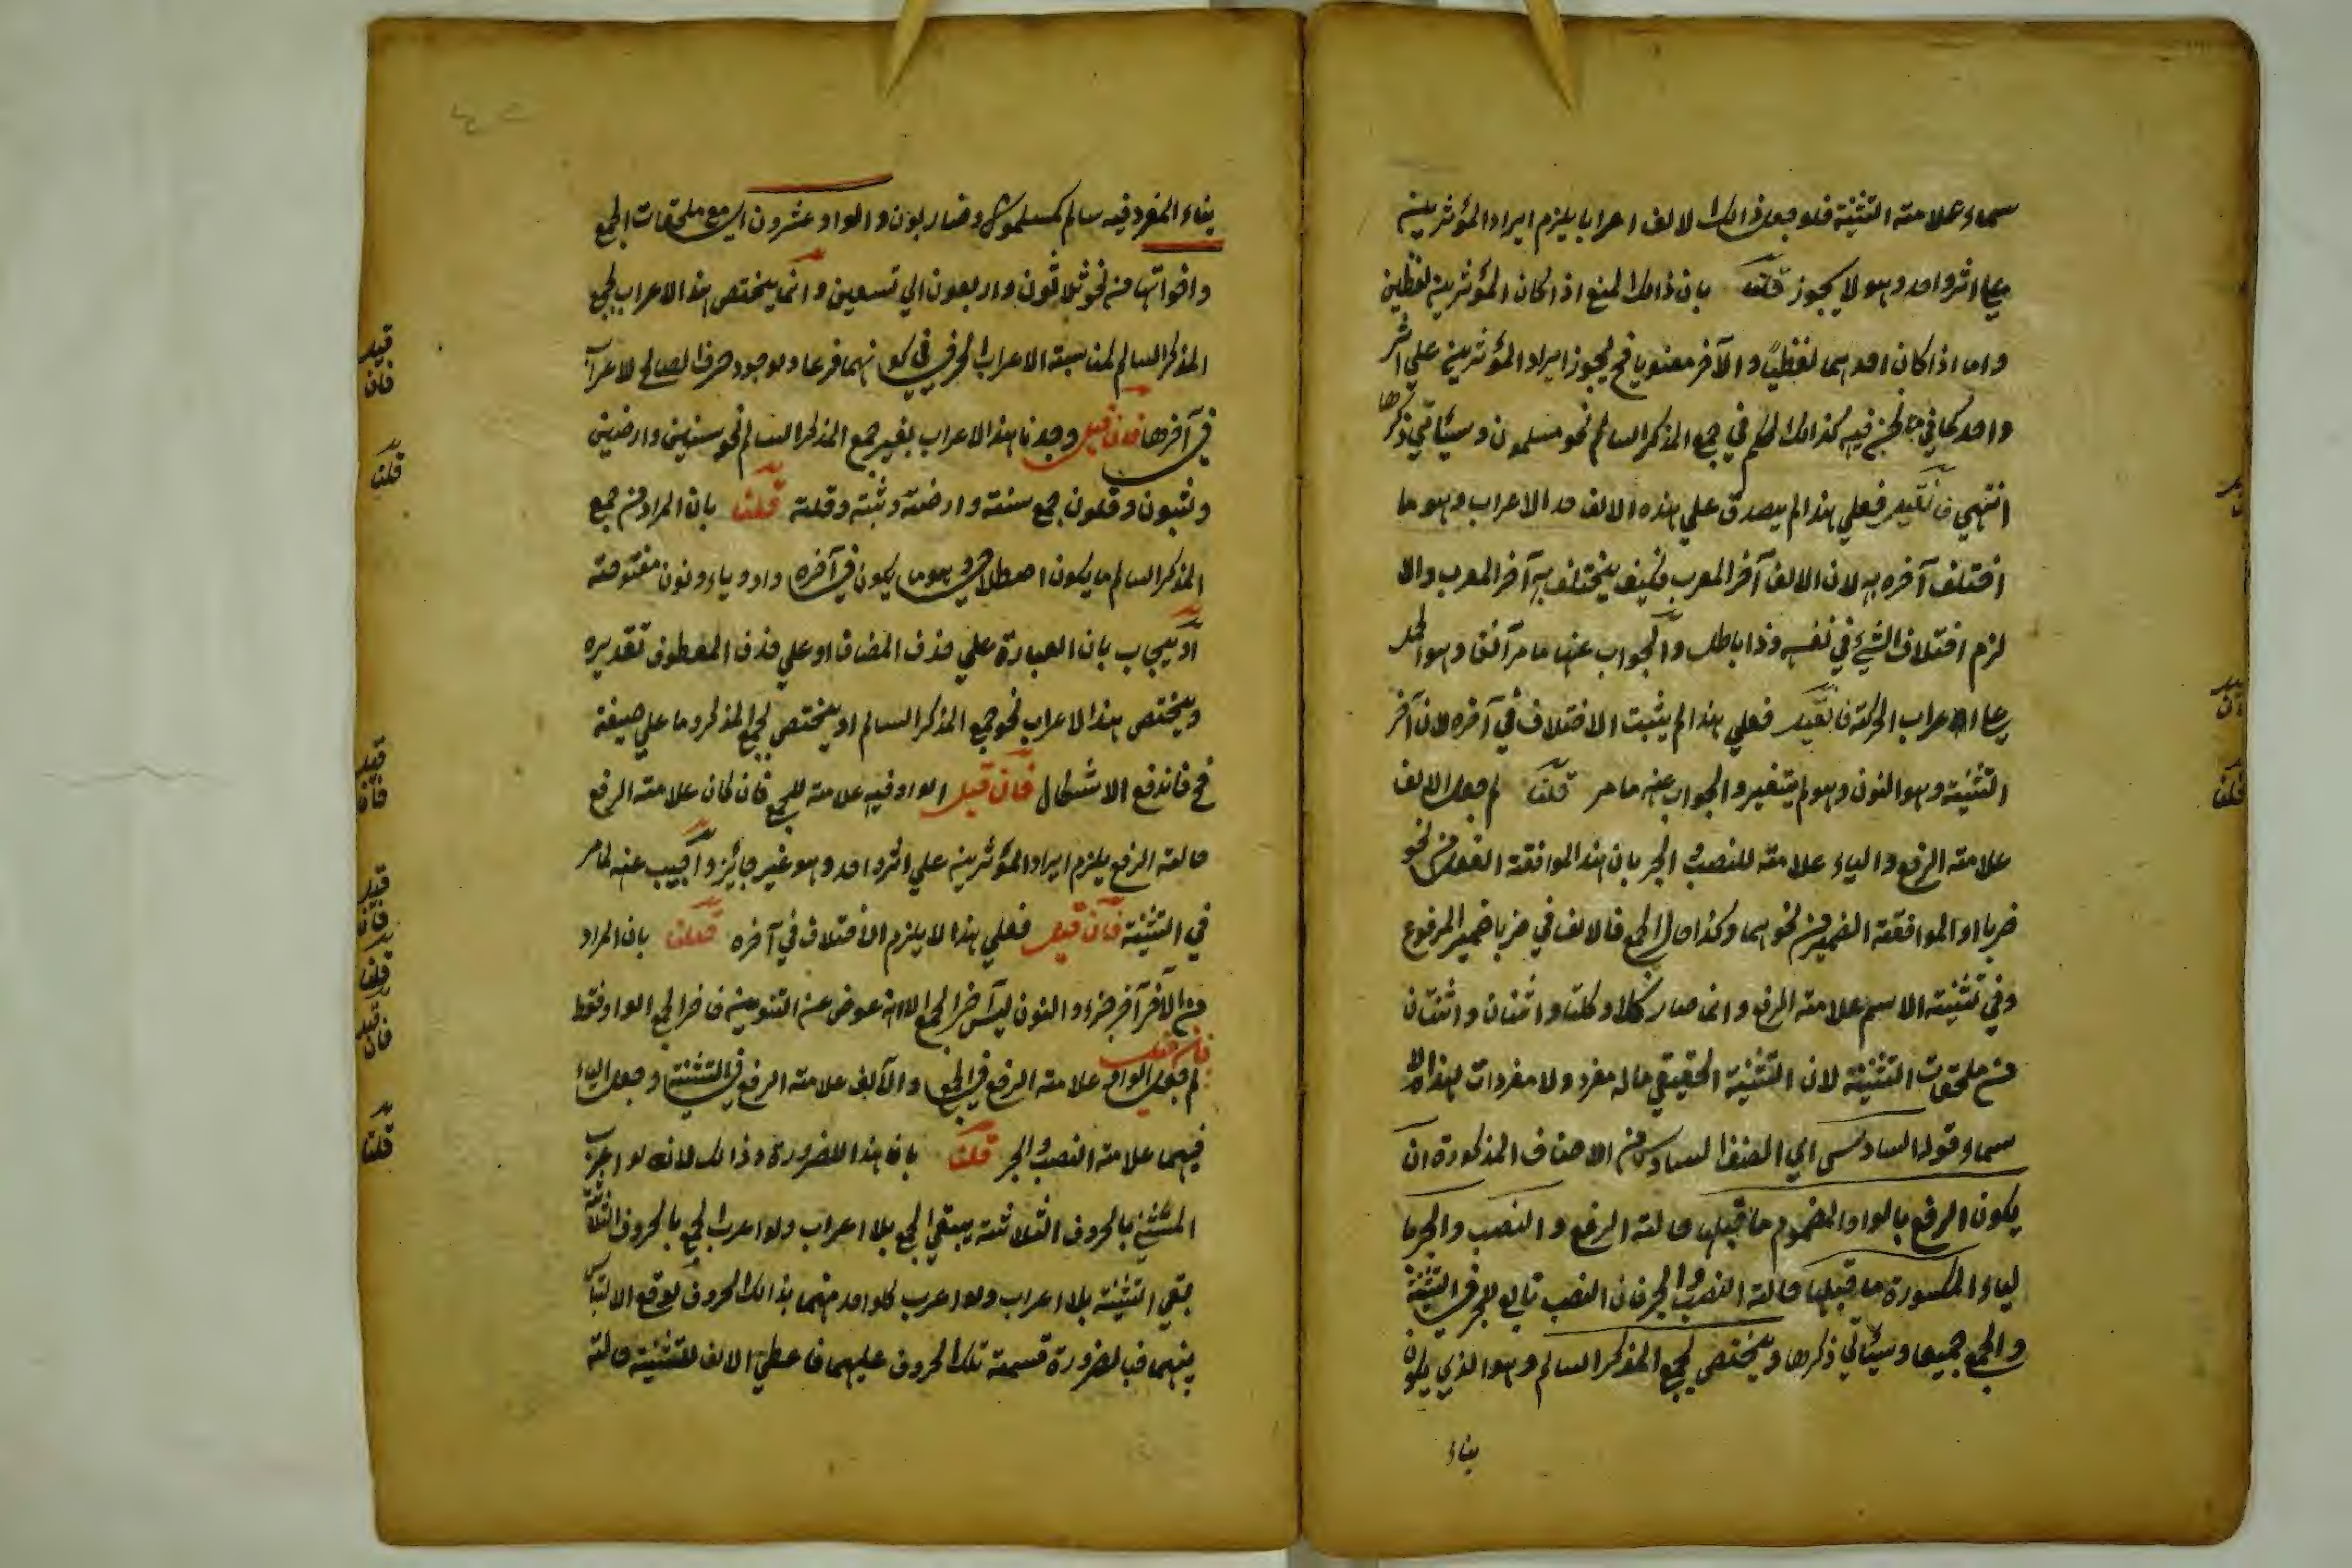 سماء علامته التثنية فلو جعل ذالك الالف اعرابا يلزم ايراد المؤثرين
علي اثر واحد وهو لا يجوز قلت بان ذالك لمنع اذا كان المؤثرين لفظين
واما اذا كان احدهما لفظيًا والآخر معنويا فح يجوز ايراد المؤثرين علي اثر
واحد كما في ما نحن فيه كذالك الحكم في جمع المذكر السالم نحو مسلمون وسيئاتي ذكرها
انتهي فان قيل فعلي هذا لم يصدق علي هذه الالف حد الاعراب وهو ما
اختلف آخره به لان الالف آخر المعرب فكيف يختلف به آخر المعرب والا
لزم اختلاف الشيء في نفسه وذا باطل والجواب عنها ما مر آنفا وهو الحمل
علي الاعراب الحركة فان قيل فعلي هذا لم يثبت الاختلاف في آخره لان آخر
التثنية وهو النون وهو لم يتغير والجواب عنه ما مر قلنا لم جعل الالف
علامته الرفع والياء علامته للنصب والجر بان هذا لموافقة الفعل من نحو
ضربا او الموافقة الضمير من نحو هما وكذا حال الجمع فالالف في ضربا ضمير المرفوع
وفي تثنيته الاسم علامته الرفع وانما صار كلا وكلتا واثنان واثنتان
من ملحقات التثنية لان التثنية الحقيقي ماله مفرد ولا مفردات لهذا الا
سماء وقوله السادس اي الصنف السادس من الاصناف المذكورة ان
يكون الرفع بالواو المضموم ما قبلها حالته الرفع والنصب والجر با
لياء المكسورة ما قبلها حالته النصب والجر فان النصب تابع للجر في التثنية
والجمع جميعا وسيئاتي ذكرها ويختص بجمع المذكر السالم وهو الذي يكون
بناء
بناء المفرد فيه سالم كمسلمون وضاربون والواو عشرون اي مع ملحقات الجمع
واخواتها من نحو ثلاثون واربعون الي تسعين وانما يختص هذا الاعراب بجمع
المذكر السالم لمناسبة الاعراب الحرفي في كونهما فرعا ولوجود حرف الصالح لاعراب
في آخرها فان قيل وجدنا هذا الاعراب بغير جمع المذكر السالم نحو سنين وارضين
وثبون وقلون جمع سنة وارضة وثبة وقلة قلنا بان المراد من جمع
المذكر السالم ما يكون اصطلاحي وهو ما يكون في آخره واو وياء ونون مفتوحة
او يجاب بان العبارة علي حذف المضاف او علي حذف المعطوف تقديره
ويختص هذا الاعراب نحو جمع المذكر السالم او يختص بجمع المذكر وما علي صيغة
فح فاندفع الاشكال فان قيل الواو فيه علامته للجمع فان كان علامته الرفع
حالته الرفع يلزم ايراد المؤثرين علي اثر واحد وهو غير جائز واجيب عنه لما مر
في التثنية فان قيل فعلي هذا لا يلزم الاختلاف في آخره قلنا بان المراد
من الآخر آخر جزء والنون ليس آخر الجمع الا انه عوض عن التنوين فاخر الجمع الواو فقط
فان قيل
لم جعل الواو علامته الرفع في الجمع والالف علامته الرفع في التثنية وجعل الياء
فيهما علامته النصب والجر قلنا بان هذا للضرورة وذالك لانه لو اعرب
المثني بالحروف الثلاثة يبقي الجمع بلا اعراب ولو اعرب الجمع بالحروف الثلاثة
بقي التثنية بلا اعراب ولو اعرب كلواحد منهما بذالك الحروف لوقع الالتباس
بينهما فبالضرورة قسمة تلك الحروف عليهما فاعطي الالف للتثنية حالته
قيل
فان
قلنا
قيل
فان
قيل
فان
قلنا
قيل
فان
قلنا